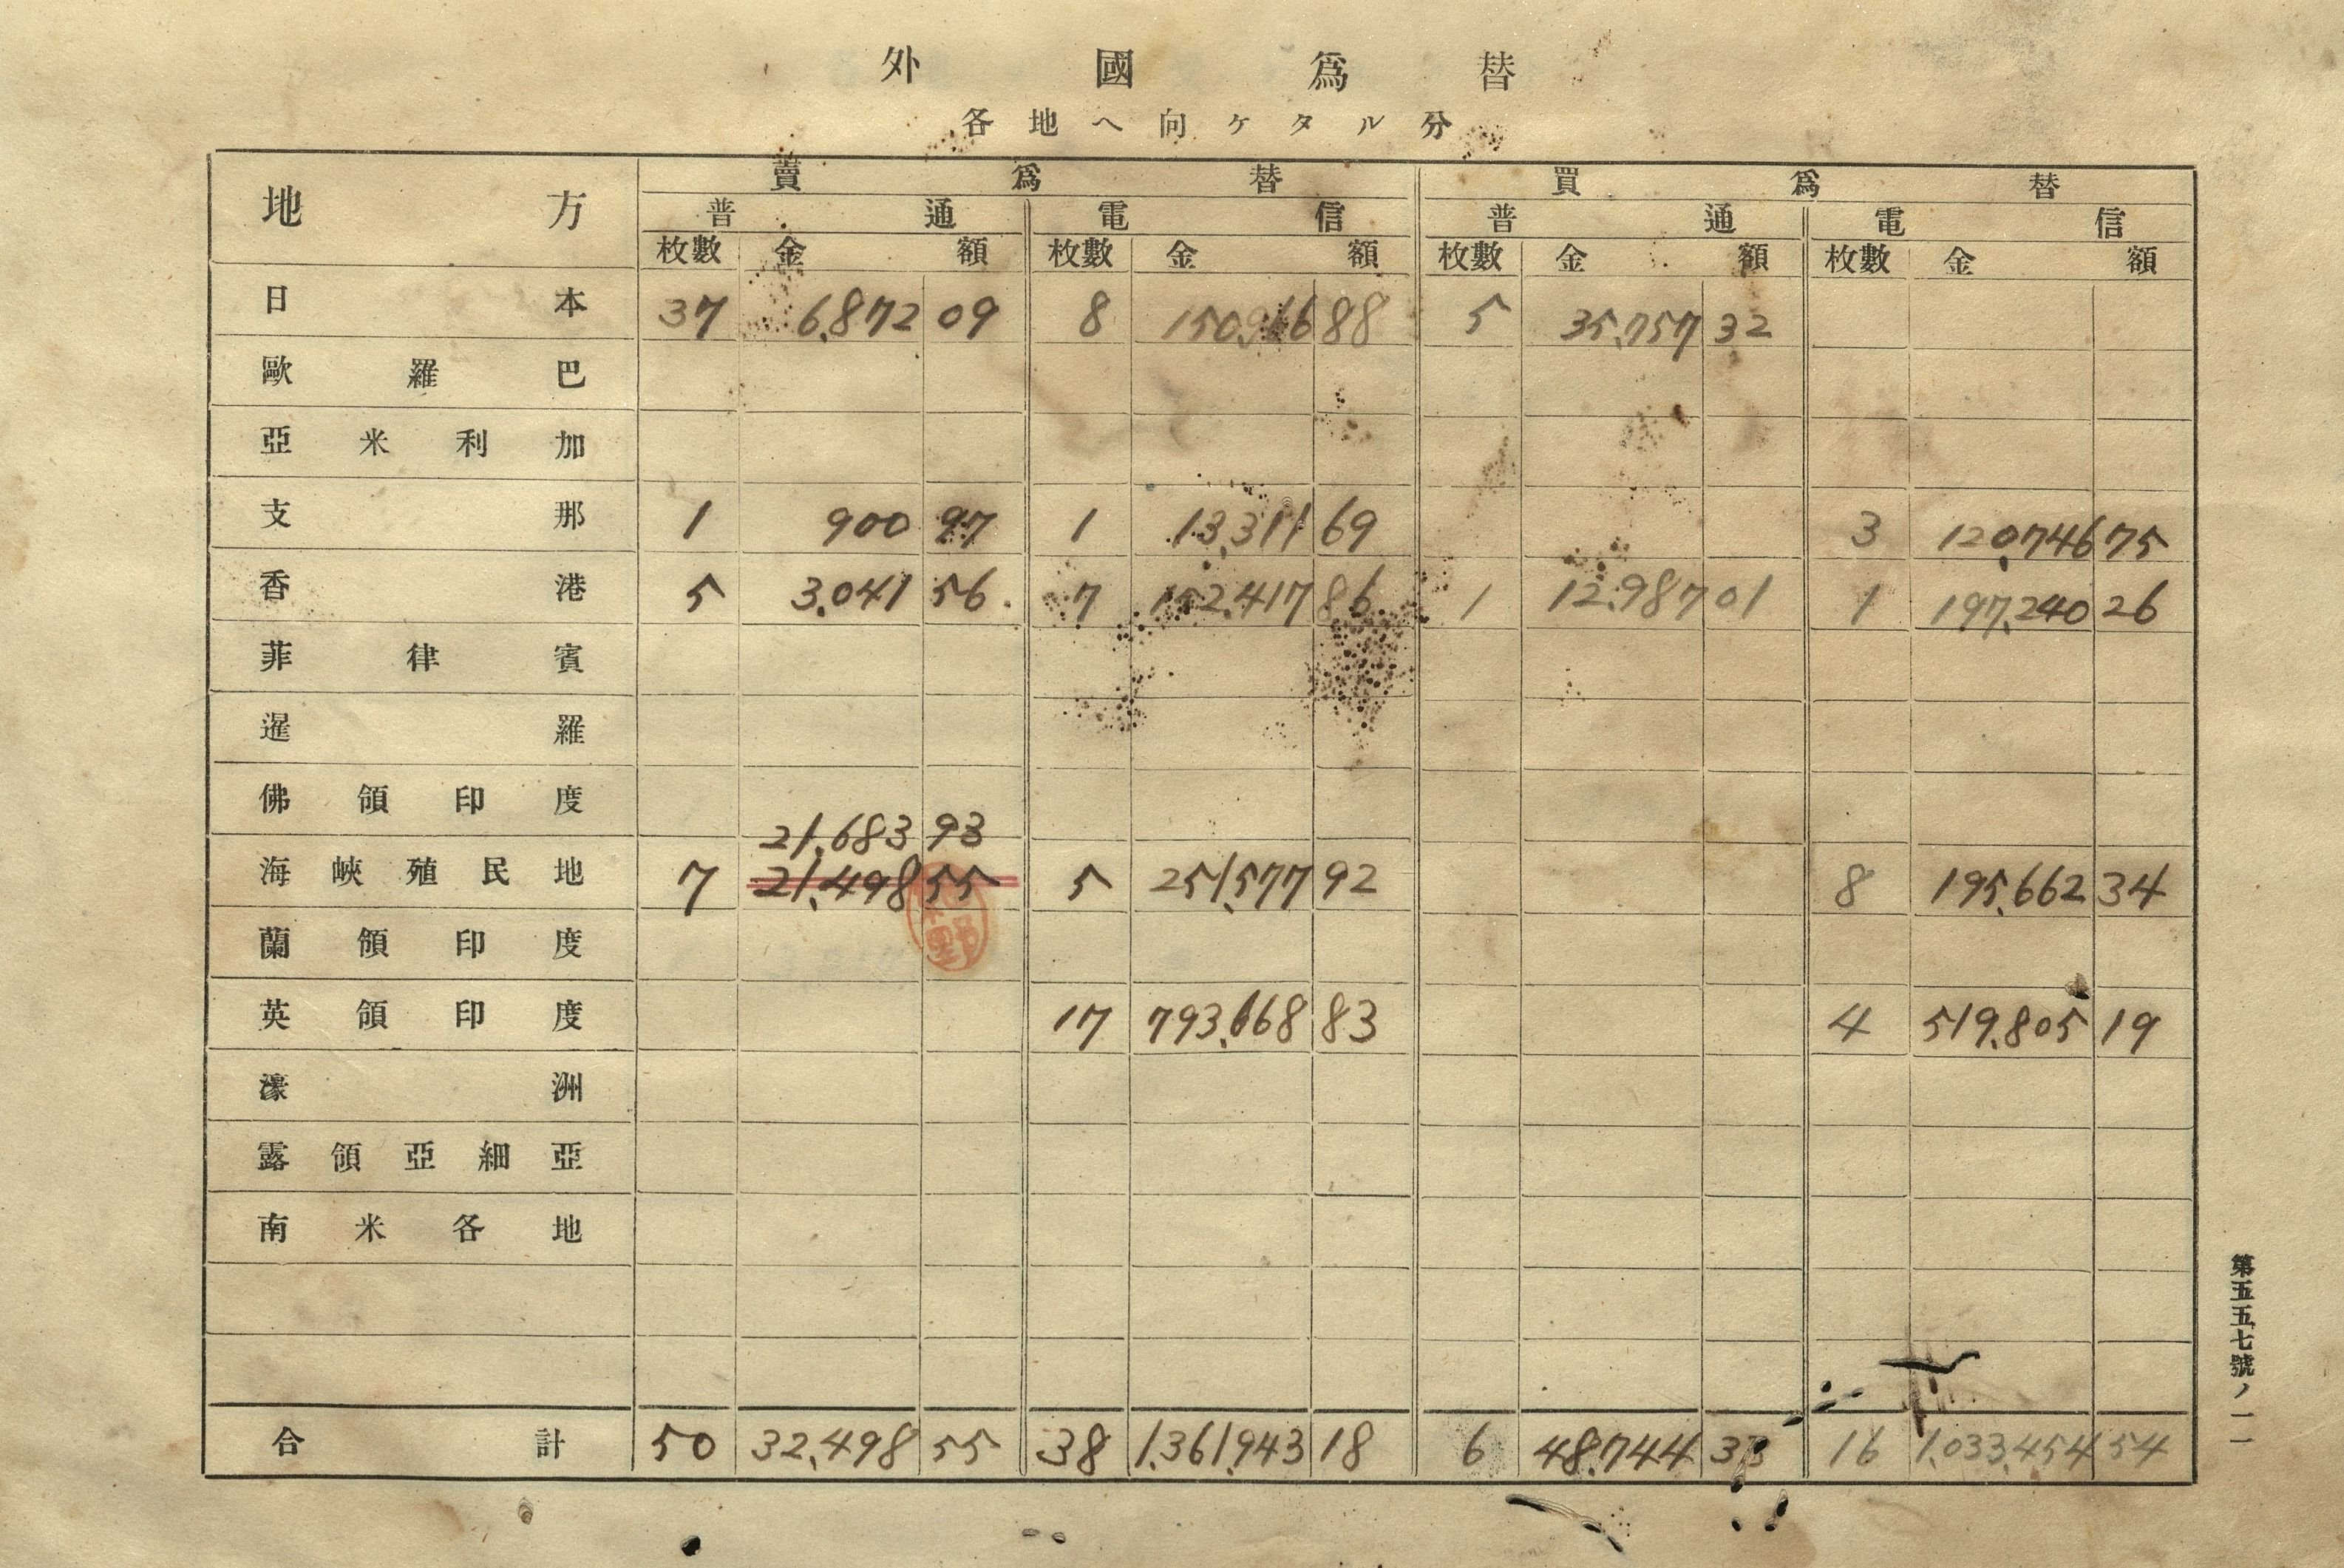 外國爲替
各地ヘ向ケタル分
地方 賣爲替 買爲替
普通 電信 普通 電信
枚數 金額 枚數 金額 枚數 金額 枚數 金額
日本 37 6,872 09 8 150,916 88 5 35,757 32
歐羅巴
亞米利加
支那 1 900 97 1 13,311 69 3 120,746 75
香港 5 3,041 56 7 152,417 86 1 12,987 01 1 197,240 26
菲律賓
暹羅
佛領印度
21,683 93
海峽殖民地 7 21,498 55 5 251,577 92 8 195,662 34
蘭領印度
英領印度 17 793,668 83 4 519,805 19
濠洲
露領亞細亞
南米各地
合計 50 32,498 55 38 1,361,943 18 6 48,744 33 16 1,033,454 54
第五五七號ノ一一